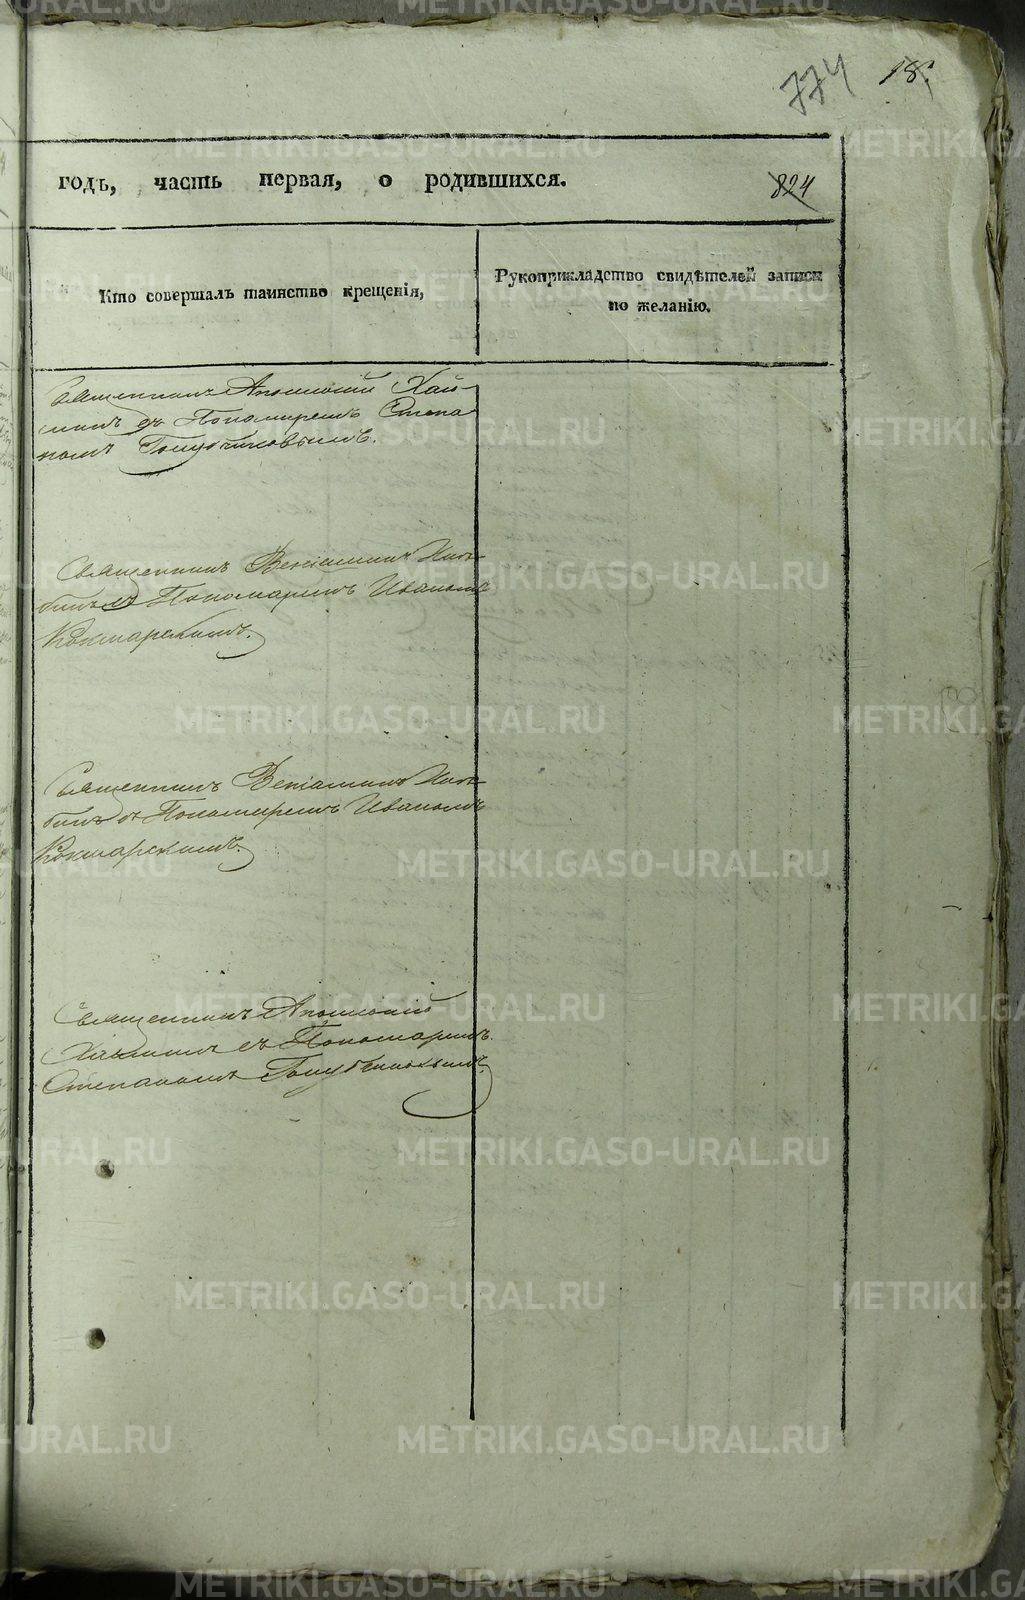 774 18.
годъ, часть первая, о родившихся. 824
Кто совершалъ таинство крещенія,
Рукоприкладство свидѣтелей записи
по желанію.
Священникъ Аполлоній
съ Пономаремъ Степа-
номъ
Священникъ Веніаминъ
Пономаремъ Иваномъ
Кокшарскимъ.
Священникъ Веніаминъ
съ Пономаремъ Иваномъ
Кокшарскимъ.
Священникъ Аполлоній
съ Пономаремъ
Степаномъ
METRIKI.GASO-URAL.RU